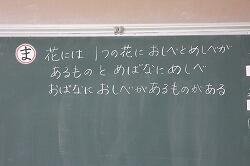 ま 花には 1つの花に おしべとめしべが
あるもの と めばなにめしべ
おばなに おしべがあるものがある